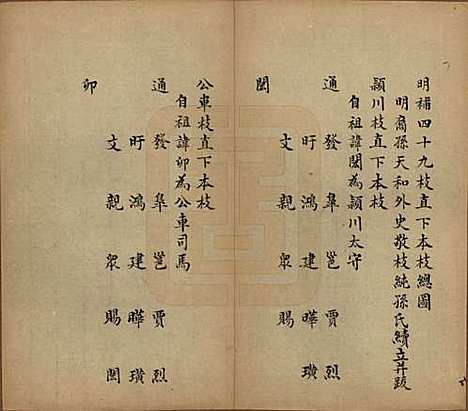 明補四十九枝直下本枝總圖
明裔孫天和外史敬枝純孫氏續立并跋
潁川枝直下本枝
自祖諱閎為潁川太守
通 發 皋 邕 賈 烈
盱 鴻 建 曄 璜
文 親 眾 賜
閎
公車枝直下本枝
自祖諱卯為公車司馬
通 發 皋 邕 賈 烈
盱 鴻 建 曄 璜
文 親 眾 賜 閎
卯